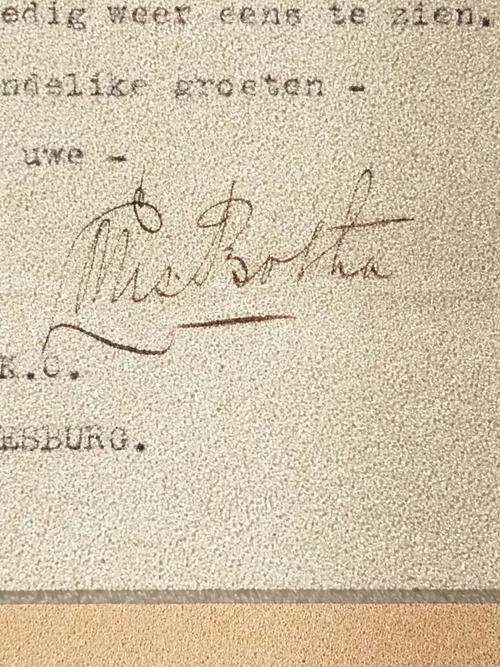 edig weer eens te zien.
ndelike groeten -
uwe -
Louis Botha
K.C.
ESBURG.